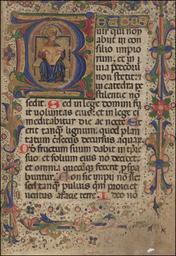 Beatus
uir qui non
abiit in con
silio impio
rum et in u
ia peccatoru
non stetit
in cathedra pe
stilentie no
sedit Sed in lege domini fu
it uoluntas eius et in lege ei
us meditabitur die ac nocte Et
erit tanq lignum quod plan
tatum est secus decursus aquar
fructum suum dabit in tpe
suo et folium eius no defluet
et omnia quecuq faciet pspe
rabuntur Non sic impii no sic
sed tanq puluis que proicit
uentus a facie terre Ideo no